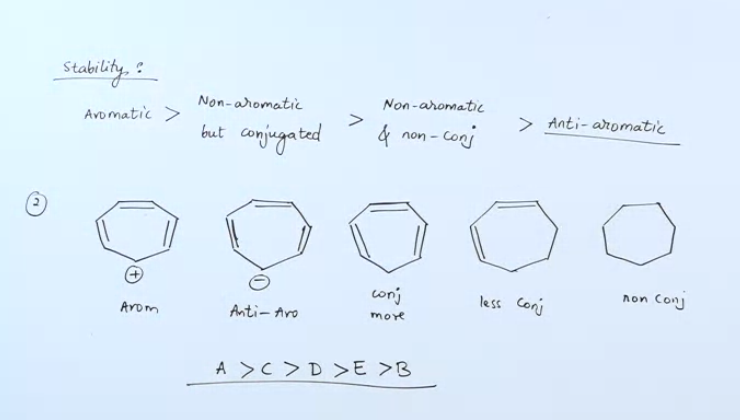 Stability:?
Aromatic > Non-aromatic but conjugated > Non-aromatic & non-conj > Anti-aromatic
2
+ −
Arom Anti-Aro conj more less conj non conj
A > C > D > E > B